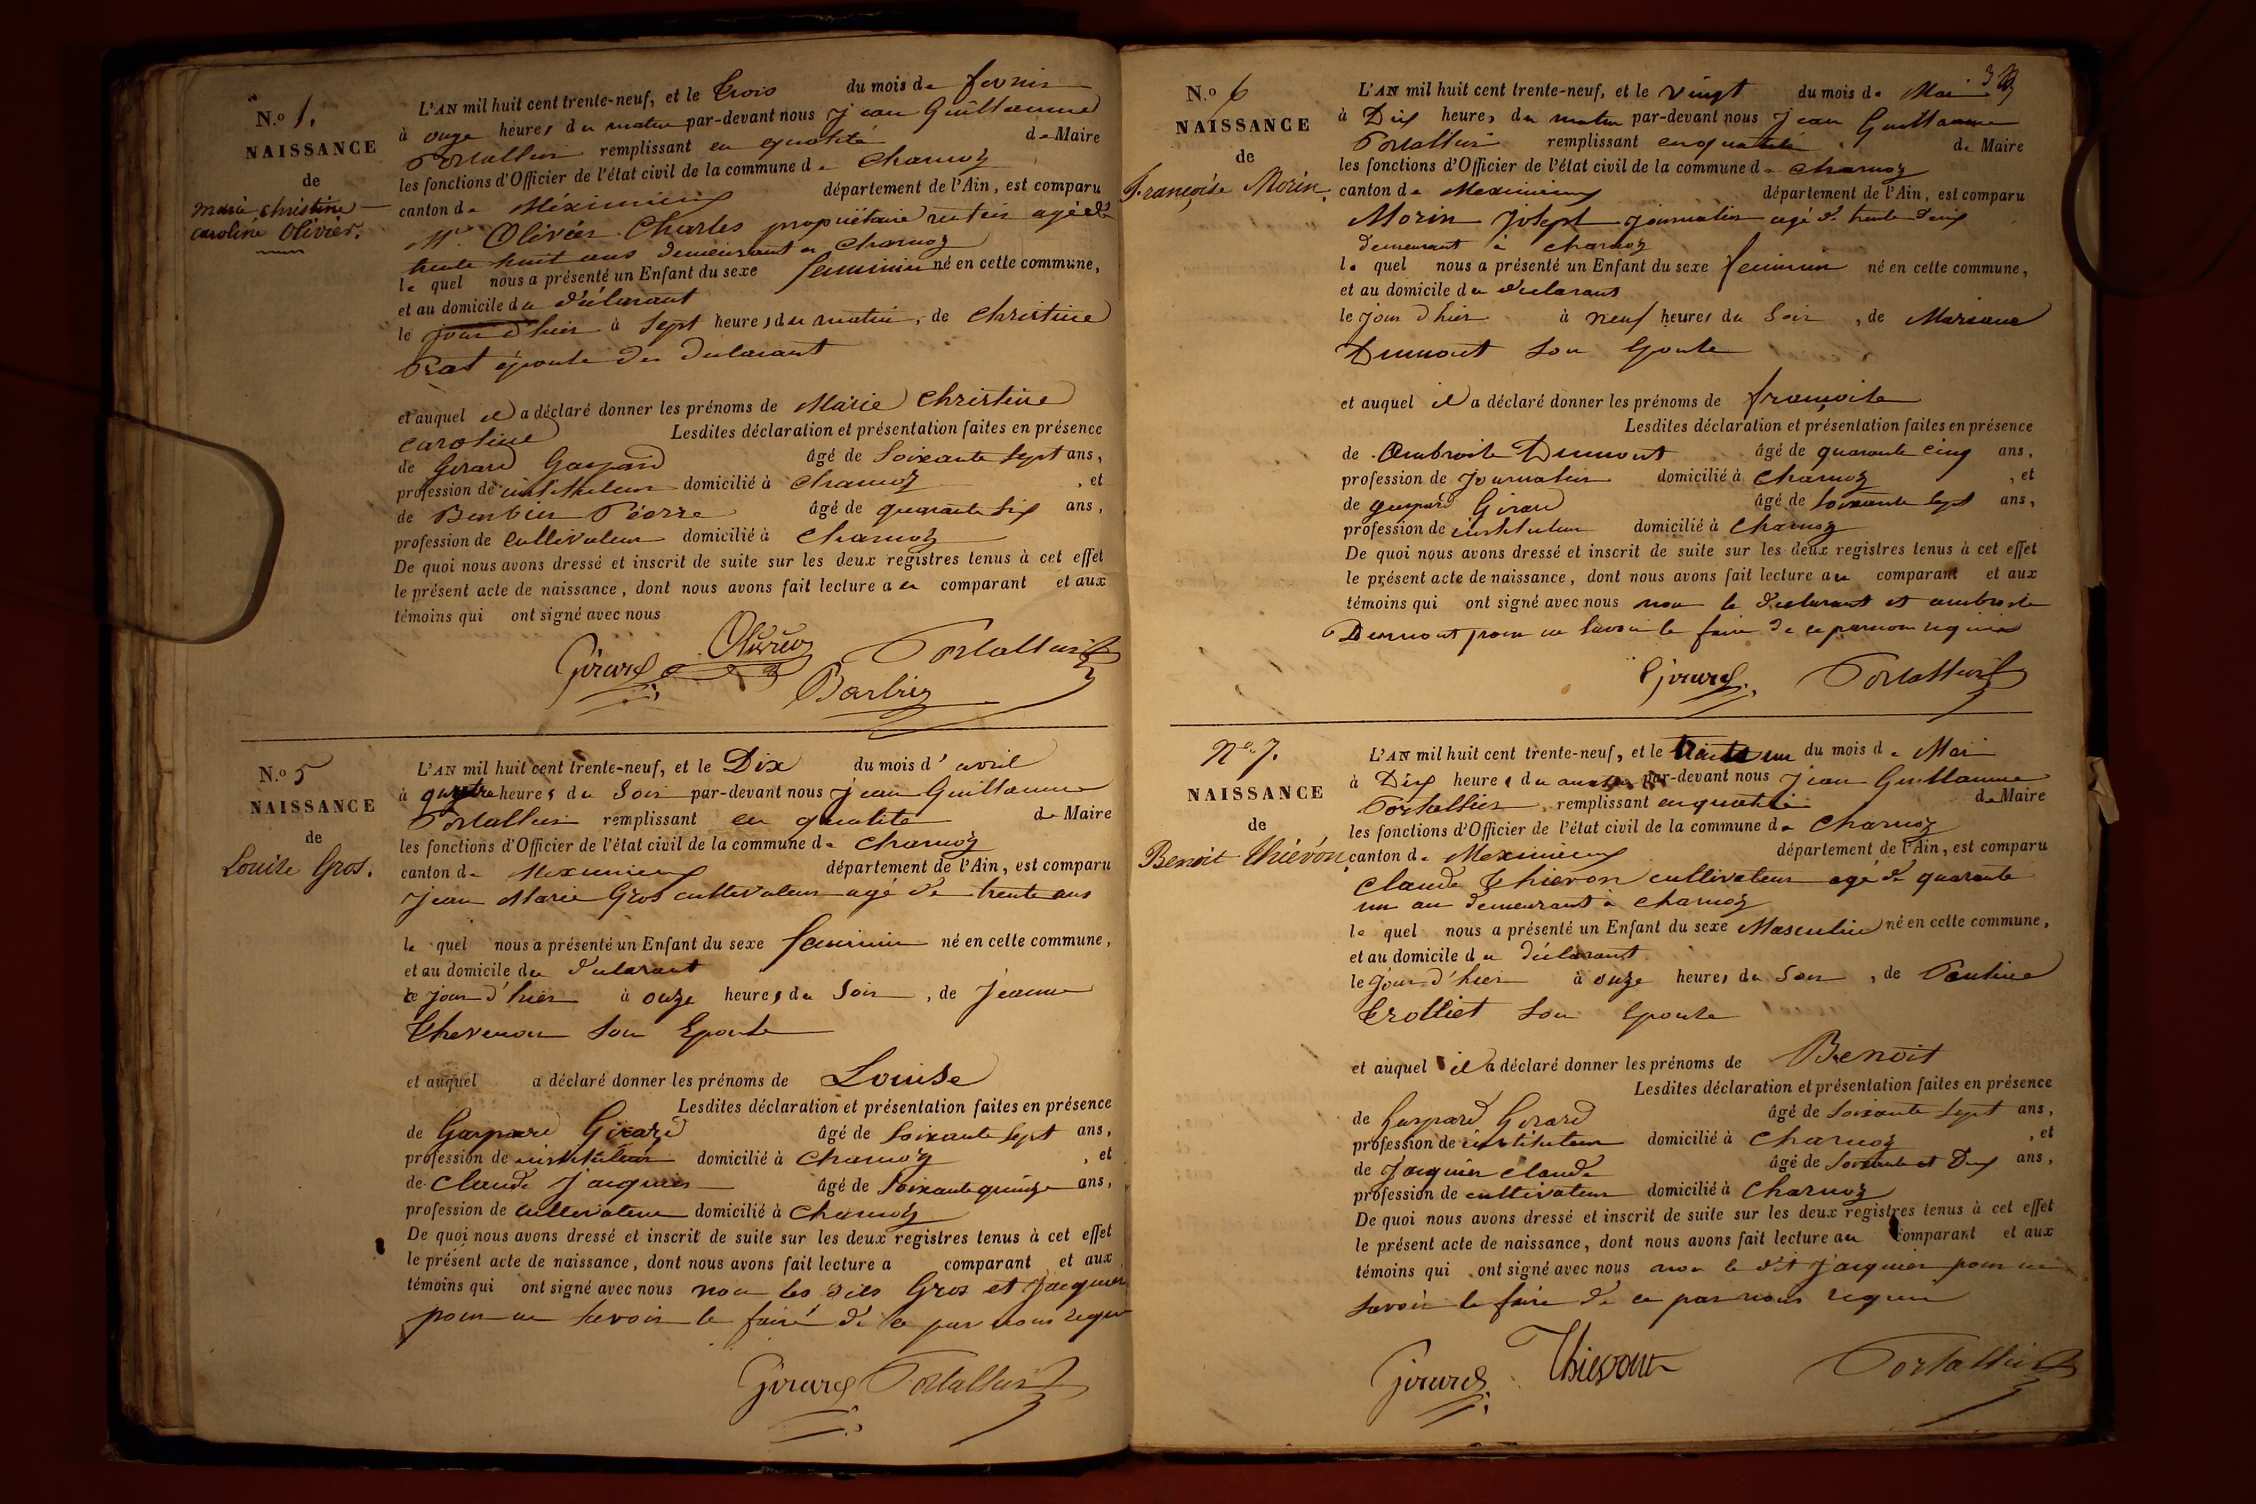 N.o 1.
NAISSANCE
de
Marie Christine
Caroline Olivier.
L'AN mil huit cent trente-neuf, et le Trois du mois de fevrier
à onze heures du matin par-devant nous Jean Guillaume
Portallier remplissant en qualité de Maire
les fonctions d'Officier de l'état civil de la commune de Charnoz
canton de Méximieux département de l'Ain, est comparu
Mr. Olivier Charles propriétaire rentier agé de
trente huit ans demeurant a Charnoz
le quel nous a présenté un Enfant du sexe feminin né en cette commune,
et au domicile du déclarant
le jour d'hier à Sept heures du matin, de Christine
Prat épouse du declarant
et auquel il a déclaré donner les prénoms de Marie Christine
Caroline Lesdites déclaration et présentation faites en présence
de Girard Gaspard âgé de Soixante Sept ans,
profession de instituteur domicilié à Charnoz , et
de Barbier Pierre âgé de quarante Six ans,
profession de Cultivateur domicilié à Charnoz
De quoi nous avons dressé et inscrit de suite sur les deux registres tenus à cet effet
le présent acte de naissance, dont nous avons fait lecture au comparant et aux
témoins qui ont signé avec nous
Girard Olivier Portallier
Barbier
N.o 5
NAISSANCE
de
Louise Gros.
L'AN mil huit cent trente-neuf, et le Dix du mois d' avril
à quatre heures du Soir par-devant nous Jean Guillaume
Portallier remplissant en qualité de Maire
les fonctions d'Officier de l'état civil de la commune de Charnoz
canton de Meximieux département de l'Ain, est comparu
Jean Marie Gros cultivateur agé de trente ans
le quel nous a présenté un Enfant du sexe feminin né en cette commune,
et au domicile du declarant
le jour d'hier à onze heures du Soir , de Jeanne
Thevenon son Epouse
et auquel a déclaré donner les prénoms de Louise
Lesdites déclaration et présentation faites en présence
de Gaspard Girard âgé de Soixante Sept ans,
profession de instituteur domicilié à Charnoz , et
de Claude Jacquier âgé de Soixante quinze ans,
profession de Cultivateur domicilié à Charnoz
De quoi nous avons dressé et inscrit de suite sur les deux registres tenus à cet effet
le présent acte de naissance, dont nous avons fait lecture a comparant et aux
témoins qui ont signé avec nous non les dits Gros et Jacquier
pour ne savoir le faire de ce par nous requis
Girard Portallier
N.o 6
NAISSANCE
de
Françoise Morin.
L'AN mil huit cent trente-neuf, et le vingt du mois de Mai
à Dix heures du matin par-devant nous Jean Guillaume
Portallier remplissant en qualité de Maire
les fonctions d'Officier de l'état civil de la commune de Charnoz
canton de Meximieux département de l'Ain, est comparu
Morin Joseph journalier agé de trente deux
demeurant à Charnoz
le quel nous a présenté un Enfant du sexe feminin né en cette commune,
et au domicile du declarant
le jour d'hier à neuf heures du Soir , de Mariane
Dumont son Epouse
et auquel il a déclaré donner les prénoms de françoise
Lesdites déclaration et présentation faites en présence
de Ambroise Dumont âgé de quarante cinq ans,
profession de Journalier domicilié à Charnoz , et
de gaspard Girard âgé de soixante sept ans,
profession de instituteur domicilié à Charnoz
De quoi nous avons dressé et inscrit de suite sur les deux registres tenus à cet effet
le présent acte de naissance, dont nous avons fait lecture au comparant et aux
témoins qui ont signé avec nous non le declarant et ambroise
Dumont pour ne savoir le faire de ce par nous requis
Girard Portallier
No. 7.
NAISSANCE
de
Benoit Thiévon.
L'AN mil huit cent trente-neuf, et le trente un du mois de Mai
à Dix heures du par-devant nous Jean Guillaume
Portallier remplissant en qualité de Maire
les fonctions d'Officier de l'état civil de la commune de Charnoz
canton de Meximieux département de l'Ain, est comparu
Claude Thievon cultivateur agé de quarante
un an demeurant à Charnoz
le quel nous a présenté un Enfant du sexe Masculin né en cette commune,
et au domicile du déclarant
le jour d'hier à onze heures du Soir , de Pauline
Trolliet son Epouse
et auquel il a déclaré donner les prénoms de Benoit
Lesdites déclaration et présentation faites en présence
de Gaspard Girard âgé de Soixante Sept ans,
profession de instituteur domicilié à Charnoz , et
de Jacquier Claude âgé de Soixante et Dix ans,
profession de cultivateur domicilié à Charnoz
De quoi nous avons dressé et inscrit de suite sur les deux registres tenus à cet effet
le présent acte de naissance, dont nous avons fait lecture au comparant et aux
témoins qui ont signé avec nous non le dit Jacquier pour ne
savoir le faire de ce par nous requis
Girard Thievon Portallier